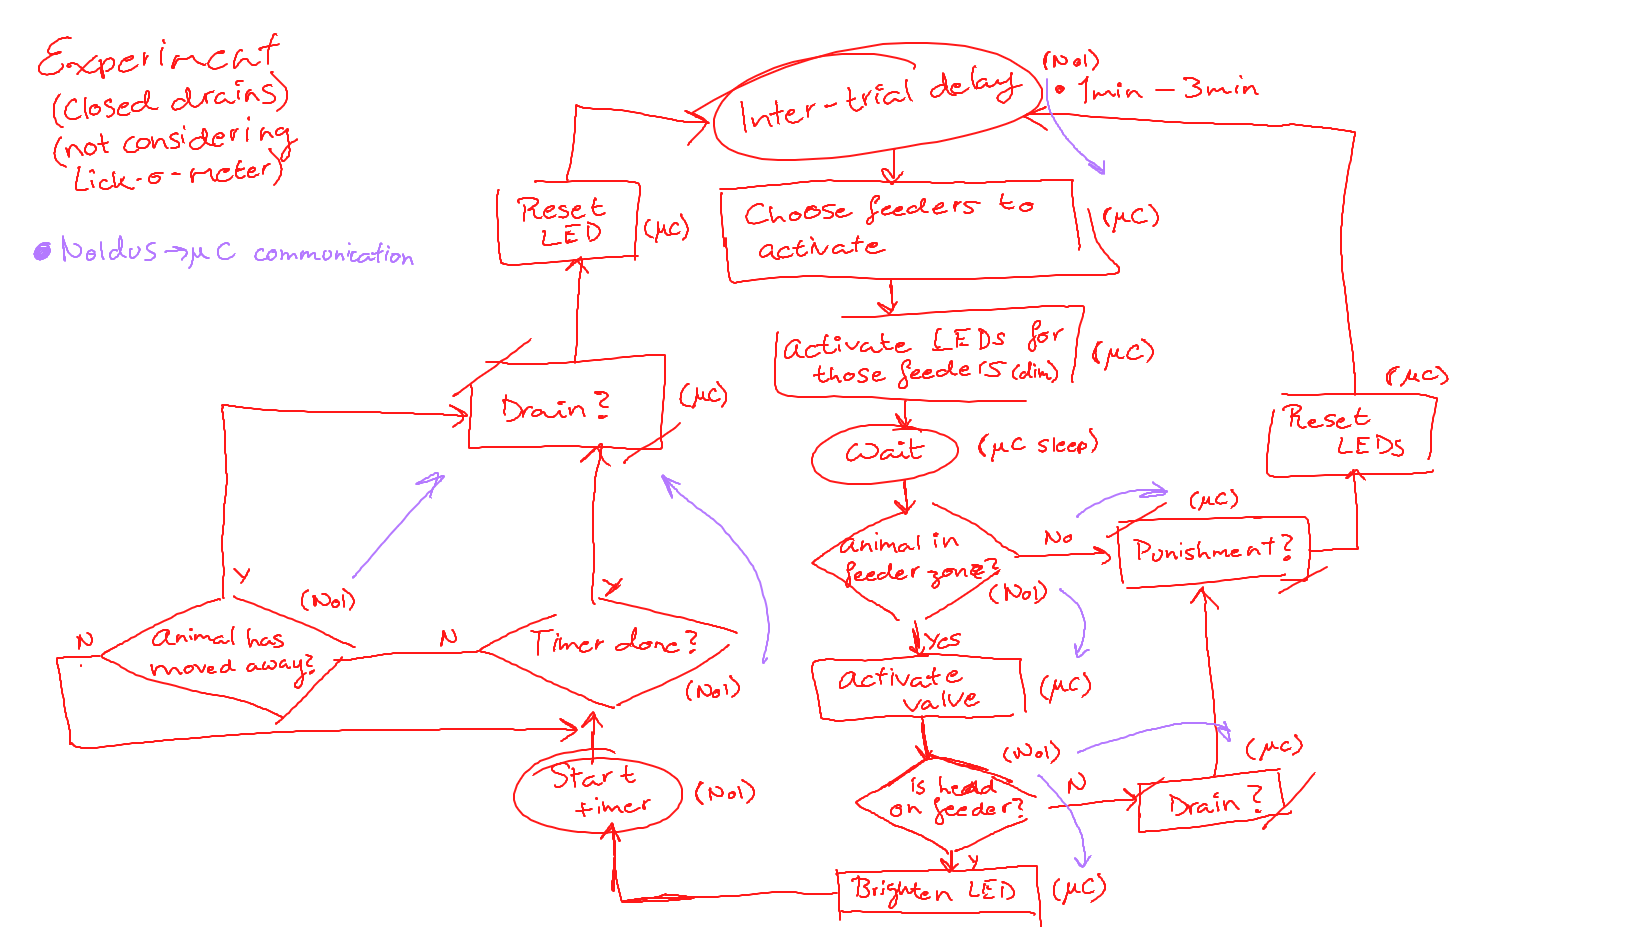 Experiment
(Closed drains)
(not considering
Lick-o-meter)
Noldus→μC communication
Inter-trial delay
(Nol)
• 1min – 3min
Choose feeders to
activate
(μC)
Activate LEDs for
those feeders (dim)
(μC)
Wait
(μC sleep)
Animal in
feeder zone?
(Nol)
No
Yes
Punishment?
(μC)
Reset
LEDs
(μC)
Activate
valve
(μC)
is head
on feeder?
(Nol)
N
Y
Drain?
(μC)
Brighten LED
(μC)
Start
timer
(Nol)
Timer done?
(Nol)
Y
N
Animal has
moved away?
(Nol)
Y
N
Drain?
(μC)
Reset
LED
(μC)